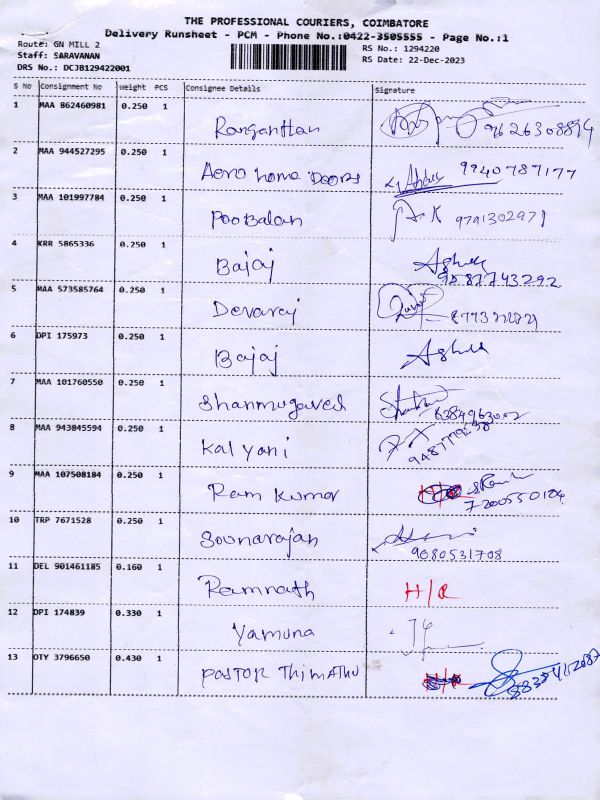 THE PROFESSIONAL COURIERS, COIMBATORE
Delivery Runsheet - PCM - Phone No.:0422-3505555 - Page No.:1
Route: GN MILL 2
RS No.: 1294220
Staff: SARAVANAN
RS Date: 22-Dec-2023
DRS No.: DCJB129422001
S No Consignment No Weight PCS Consignee Details Signature
1 MAA 862460981 0.250 1 Ranganttan 9626308894
2 MAA 944527295 0.250 1 Aero home Doors 9940787177
3 MAA 101997784 0.250 1 Poobalan 9791302971
4 KRR 5865336 0.250 1 Bajaj 9587743292
5 MAA 573585764 0.250 1 Devaraj
6 DPI 175973 0.250 1 Bajaj
7 MAA 101760550 0.250 1 Shanmugavel
8 MAA 943845594 0.250 1 Kalyani
9 MAA 107508184 0.250 1 Ram Kumar
10 TRP 7671528 0.250 1 Sounarajan 9080531708
11 DEL 901461185 0.160 1 Ramnath H/R
12 DPI 174839 0.330 1 Yamuna
13 OTY 3796650 0.430 1 Pastor Thimathu